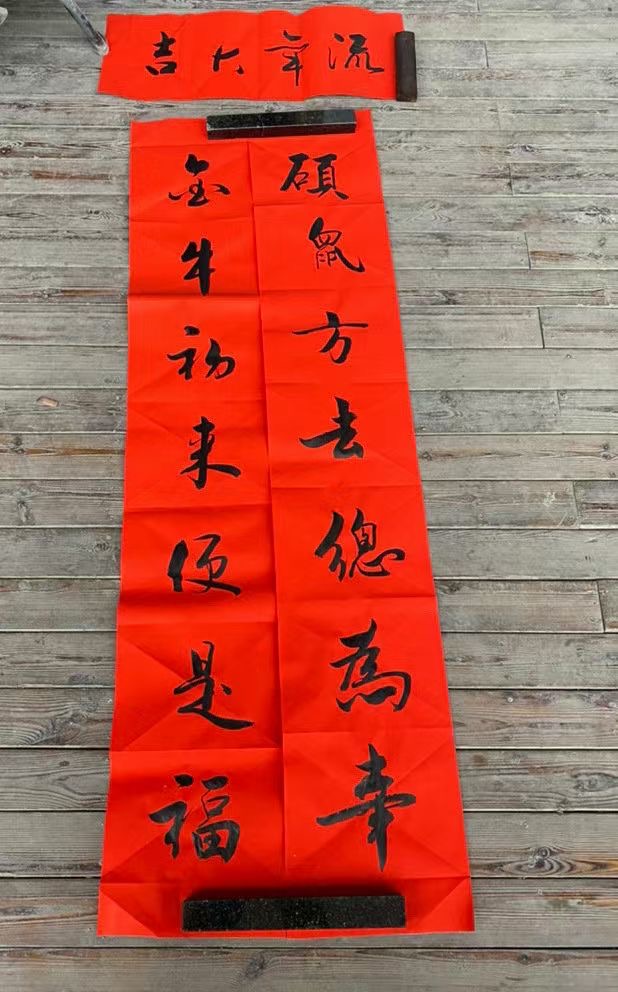 流年大吉
碩鼠方去總為幸
金牛初来便是福